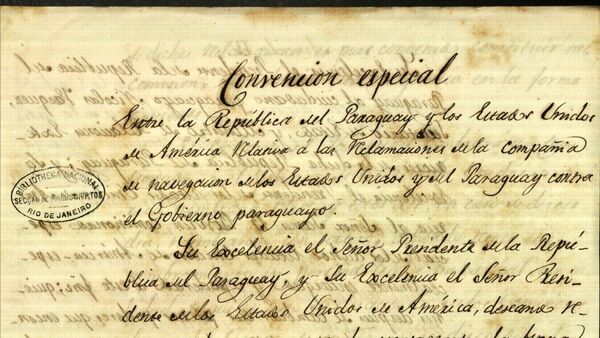 Convencion especial
Entre la República del Paraguay y los Estados Unidos
de América relativa a las reclamaciones de la compañia
de navegacion de los Estados Unidos y del Paraguay contra
el Gobierno paraguayo.
BIBLIOTHECA NACIONAL
SECÇÃO DE MANUSCRIPTOS
RIO DE JANEIRO
Su Excelencia el Señor Presidente de la Repú-
blica del Paraguay, y Su Excelencia el Señor Presi-
dente de los Estados Unidos de América, deseando re-